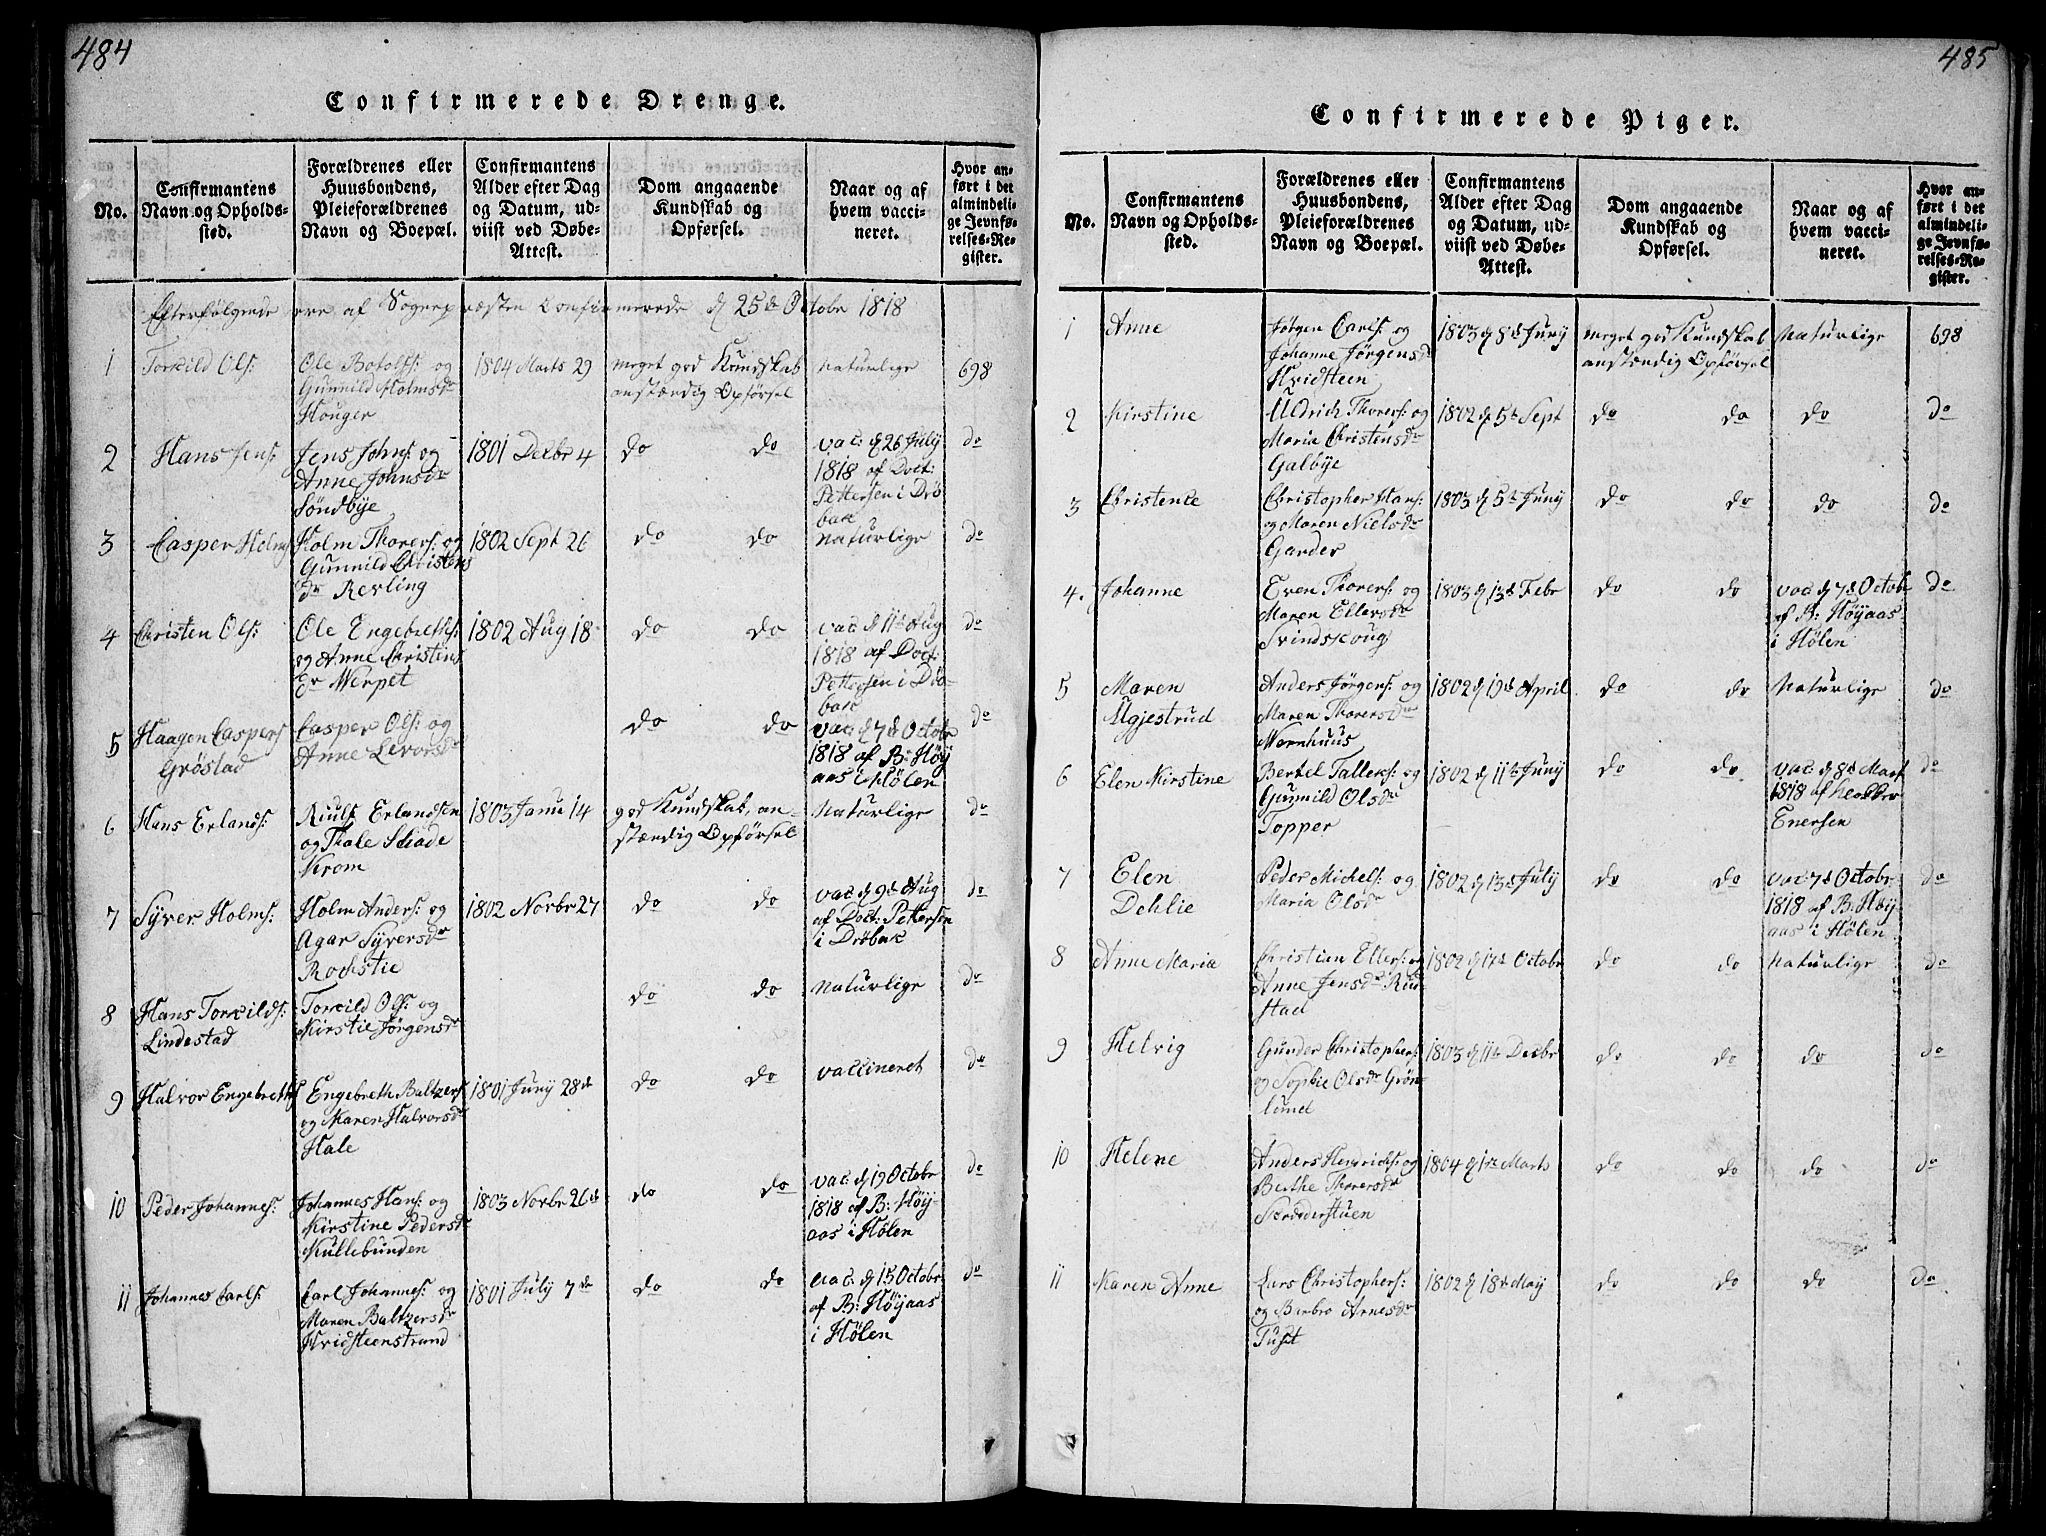 484
Confirmerede Drenge.
No.
Confirmantens
Navn og Opholds-
sted.
Forældrenes eller
Huusbondens,
Pleieforældrenes
Navn og Boepæl.
Confirmantens
Alder efter Dag
og Datum, ud-
viist ved Døbe-
Attest.
Dom angaaende
Kundskab og
Opførsel.
Naar og af
hvem vacci-
neret.
Hvor an-
ført i det
almindeli-
ge Jevnfø-
relses-Re-
gister.
Efterfølgende ere af Sognepræsten Confirmerede d 25de Octobr 1818
1
Torkild Ols:
Ole Botolfs: og
Gunnild Holmsdr
Houger
1804 Marts 29
meget god Kundskab
anstændig Opførsel
Naturlige
698
2
Hans Jens:
Jens Johns: og
Anne Johnsdr
Søndbye
1801 Decbr 4
do do
vac: d 26 July
1818 af Doct:
Pettersen i Drö
bak
do
3
Casper Holms
Holm Thorers: og
Gunnild Christens
dr Revling
1802 Sept 26
do do
Naturlige
do
4
Christen Ols:
Ole Engebreths:
og Anne Christens
dr Werpet
1802 Aug 18
do do
vac: d 11te Aug
1818 af Doct:
Pettersen i Drö-
bak
do
5
Haagen Caspers
Gröstad
Casper Ols: og
Anne Levorsdr
do do
vac: d 7de Octobr
1818 af B: Höy
aas i Hölen
do
6
Hans Erlands:
Riulf Erlandsen
og Thale Schade
Krom
1803 Janu 14
god Kundskab, an-
stændig Opførsel
Naturlige
do
7
Syver Holms:
Holm Anders: og
Agar Syversdr
Rochstie
1802 Novbr 27
do do
vac d 9de Aug
af Doct: Pettersen
i Dröbak
do
8
Hans Torkilds:
Lindestad
Torkild Ols: og
Kirstie Jörgensdr
do do
Naturlige
do
9
Halvor Engebreths
Engebreth Baltzers
og Maren Halvorsdr
Hale
1801 Juny 28de
do do
vaccineret
do
10
Peder Johannes:
Johannes Hans: og
Kirstine Pedersdr
Kullebunden
1803 Novbr 26de
do do
vac: d 19 Octobr
1818 af B: Höy-
aas i Hölen
do
11
Johannes Carls:
Carl Johannes: og
Maren Baltzersdr
Hvidsteenstrand
1801 July 7de
do do
vac: d 15 Octobr
af B: Höyaas
i Hölen
do
485
Confirmerede Piger.
No.
Confirmantens
Navn og Opholds-
sted.
Forældrenes eller
Huusbondens,
Pleieforældrenes
Navn og Boepæl.
Confirmantens
Alder efter Dag
og Datum, ud-
viist ved Døbe-
Attest.
Dom angaaende
Kundskab og
Opførsel.
Naar og af
hvem vacci-
neret.
Hvor an-
ført i det
almindeli-
ge Jevnfø-
relses-Re-
gister.
1
Anne
Jörgen Carls: og
Johanne Jörgensdr
Hvidsteen
1803 d 8de Juny
meget god Kundskab
anstændig Opførsel
Naturlige
698
2
Kirstine
Uldrich Thorers: og
Maria Christensdr
Galbye
1802 d 5te Sept
do do
do
do
3
Christence
Christopher Hans:
og Maren Nielsdr
Garder
1803 d 5te Juny
do do
do
do
4.
Johanne
Even Thorers: og
Maren Ellersdr
Svindskoug
1803 d 13de Febr
do do
vac d 7de Octobr
af B: Höyaas
i Hölen
do
5
Maren
Ugjestrud
Anders Jörgens: og
Maren Thorersdr
Wernhuus
1802 d 19de April
do do
Naturlige
do
6
Elen Kirstine
Bertel Talleks: og
Gunnild Olsdr
Topper
1802 d 11te Juny
do do
vac: d 8de Mart
1818 af Klokker
Enersen
do
7
Elen
Dehlie
Peder Michels: og
Maria Olsdr
1802 d 13de July
do do
vac: 7de Octobr
1818 af B: Höy-
aas i Hölen
do
8
Anne Maria
Christian Ellers: og
Anne Jensdr Ru-
stad
1802 d 17de Octobr
do do
Naturlige
do
9
Helvig
Gunder Christophers:
og Sophie Olsdr Grön-
lund
1803 d 11te Decbr
do do
do
do
10
Helene
Anders Hendrichs: og
Berthe Thorersdr
1804 d 1te Marts
do do
do
do
11
Karen Anne
Lars Christophers:
og Barbro Arnesdr
Tuset
1802 d 18de May
do do
do
do